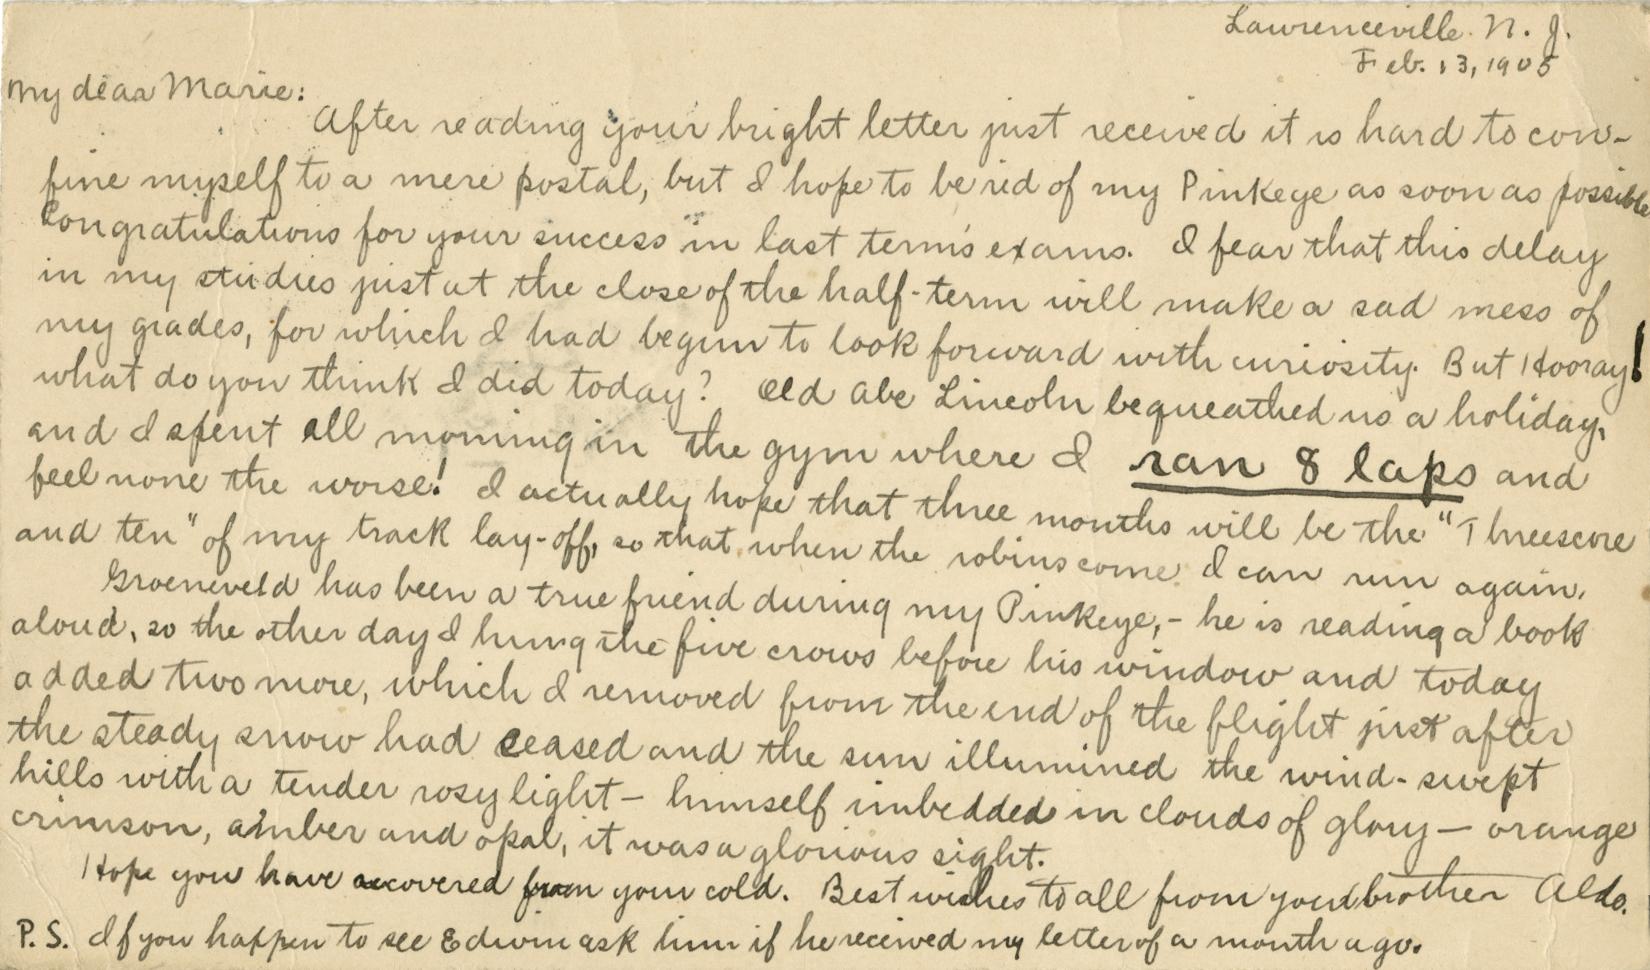 Lawrenceville. N. J.
Feb. 13, 1905
My dear Marie:
After reading your bright letter just received it is hard to con-
fine myself to a mere postal, but I hope to be rid of my Pinkeye as soon as possible
Congratulations for your success in last term's exams. I fear that this delay
in my studies just at the close of the half-term will make a sad mess of
my grades, for which I had begun to look forward with curiosity. But Hooray!
what do you think I did today? Old Abe Lincoln bequeathed us a holiday,
and I spent all morning in the gym where I ran 8 laps and
feel none the worse! I actually hope that three months will be the "Threescore
and ten" of my track lay-off, so that when the robins come I can run again.
Groeneveld has been a true friend during my Pinkeye,- he is reading a book
aloud, so the other day I hung the five crows before his window and today
added two more, which I removed from the end of the flight just after
the steady snow had ceased and the sun illumined the wind-swept
hills with a tender rosy light — himself imbedded in clouds of glory — orange
crimson, amber and opal, it was a glorious sight.
Hope you have recovered from your cold. Best wishes to all from your brother Aldo.
P.S. If you happen to see Edwin ask him if he received my letter of a month ago.